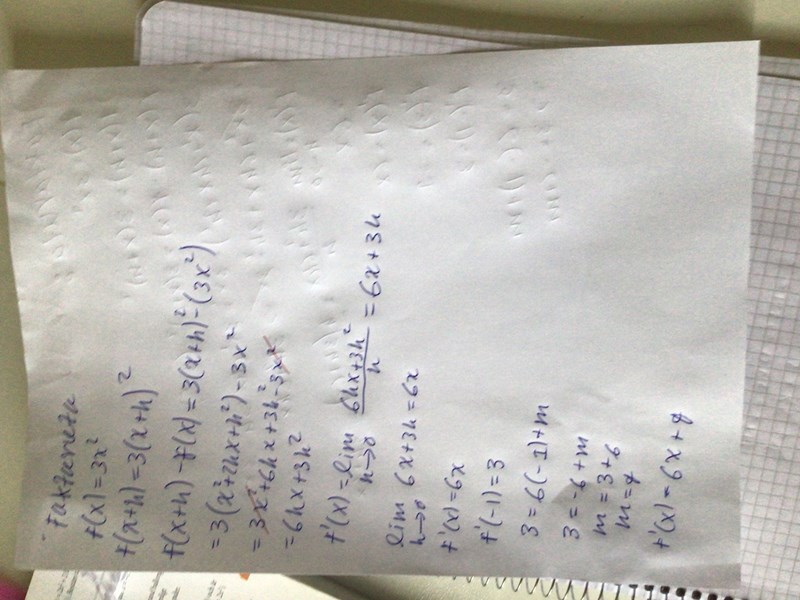 f(x) = 3x²
f(x+h) = 3(x+h)²
f(x+h) - f(x) = 3(x+h)² - (3x²)
= 3(x²+2hx+h²) - 3x²
= 3x² + 6hx + 3h² - 3x²
= 6hx + 3h²
f'(x) = lim h→0 (6hx+3h²)/h = 6x + 3h
lim h→0 6x + 3h = 6x
f'(x) = 6x
f'(-1) = 3
3 = 6(-1) + m
3 = -6 + m
m = 3 + 6
m = 9
f'(x) = 6x + 9